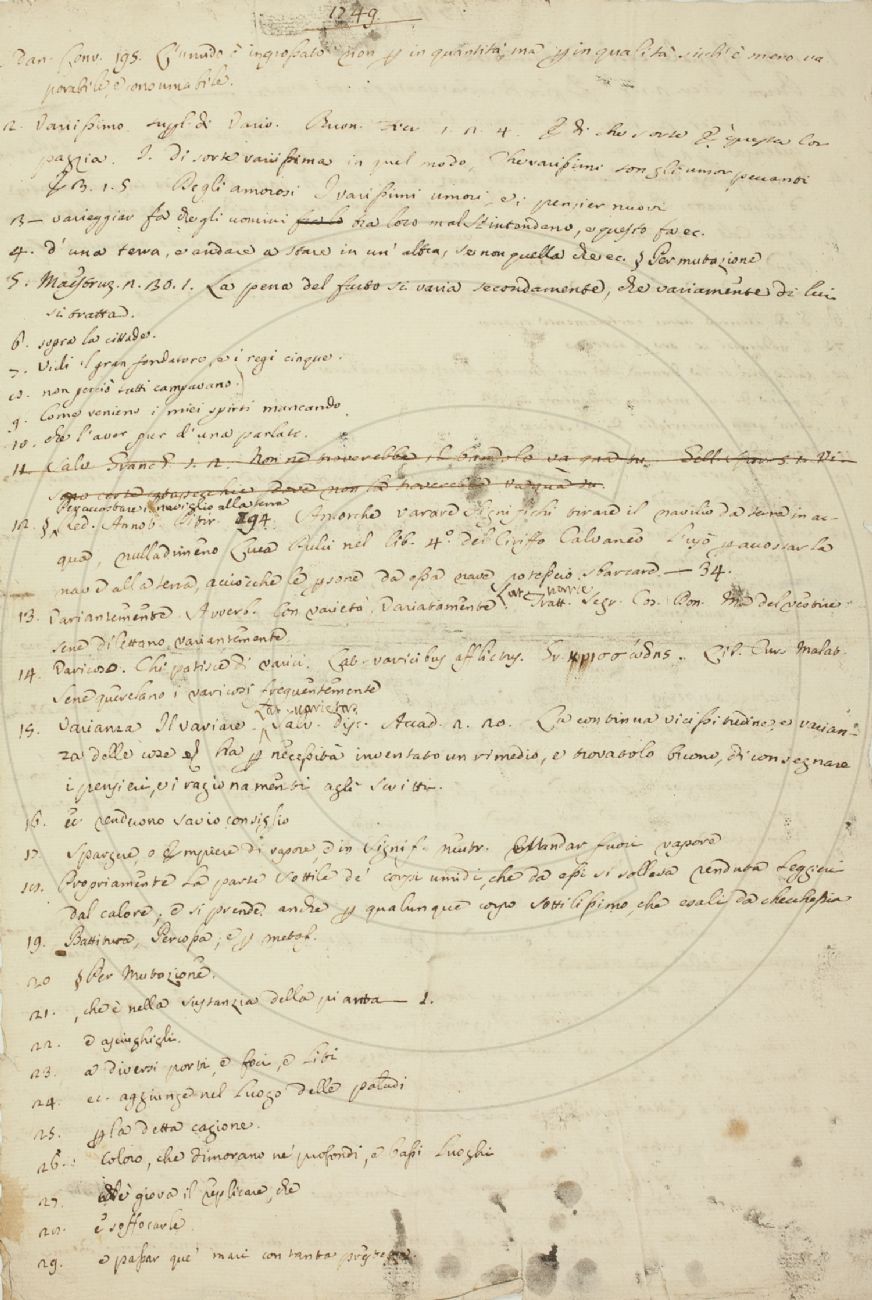 1749.
Dan. Conv. 195. L'umido è ingrossato non p in quantità, ma p in qualità, sicch'è meno va
porabile, e consumabile.
2. Varissimo. superl. di Vario. Buon. Fier. 1. 2. 4. E di che sorte è questa lor
pazzia. I. Di sorte varissima in quel modo, Che varissimi son gli umor peccanti
E 3. 1. 5 Degli amorosi I varissimi umori, e i pensier nuovi
3 — varieggiar fa che gli uomini tra loro mal s'intendano, e questo fa ec.
4. d'una terra, e andare a stare in un'altra, se non quella che ec. § Per mutazione
5. Maestruz. 2. 30. 1. La pena del furto si varia secondamente, che variamente di lui
si tratta.
6. sopra la cittade.
7. Vidi il gran fondatore, e i regi cinque.
8. non perciò tutti campavano.
9. Come venieno i miei spirti mancando
10. che l'aver pur d'una parlato.
11. Salv. Granch. 1. 2. Non ne troverebbe il bandolo va qua tu.
Per accostare il naviglio alla terra
12. § Red. Annot. Ditir. 194. Ancorche varare significhi tirare il navilio da terra in ac-
qua, nulladimeno Luca Pulci nel lib. 4.° del Ciriffo Calvaneo l'usò p accostar la
nave alla terra, acciocche le psone da essa nave potessero sbarcare — 34.
13. Variantemente. Avverb. Con varietà, Variatamente. Lat. varie. Tratt. Segr. Cos. Don. Ma del vestire
sene dilettano variantemente
14. Varicoso. Chi patisce di varici. Lat. varicibus afflictus. Gr. κιρσσώδης. Lib. Cur. Malat.
Sene querelano i varicosi frequentemente
15. Varianza Il variare. Lat. varietas. Salv. disc. Accad. 2. 20. La continua vicissitudine, e varian-
za delle cose ha p necessità inventato un rimedio, e trovatolo buono, di consegnare
i pensieri, e i ragionamenti agli scritti.
16. ec rendono savio consiglio
17. Spargere, o Empiere di vapore, e in signif. neutr. Mandar fuori vapore
18. Propriamente La parte sottile de' corpi umidi, che da essi si solleva renduta leggieri
dal calore; e si prende anche p qualunque corpo sottilissimo, che esali da checchessia
19. Battitura, Percossa; e p metaf.
20 § Per Mutazione.
21. , che è nella sustanzia della pianta — 1.
22. e asciughigli.
23. a diversi porti, e foci, e Liti
24. ec. aggiunge nel Luogo delle paludi
25. p la detta cagione.
26. Coloro, che dimorano ne' profondi, e bassi Luoghi
27. giova il replicare, che
28. e soffocarle
29. e passar que' mari con tanta prestezza